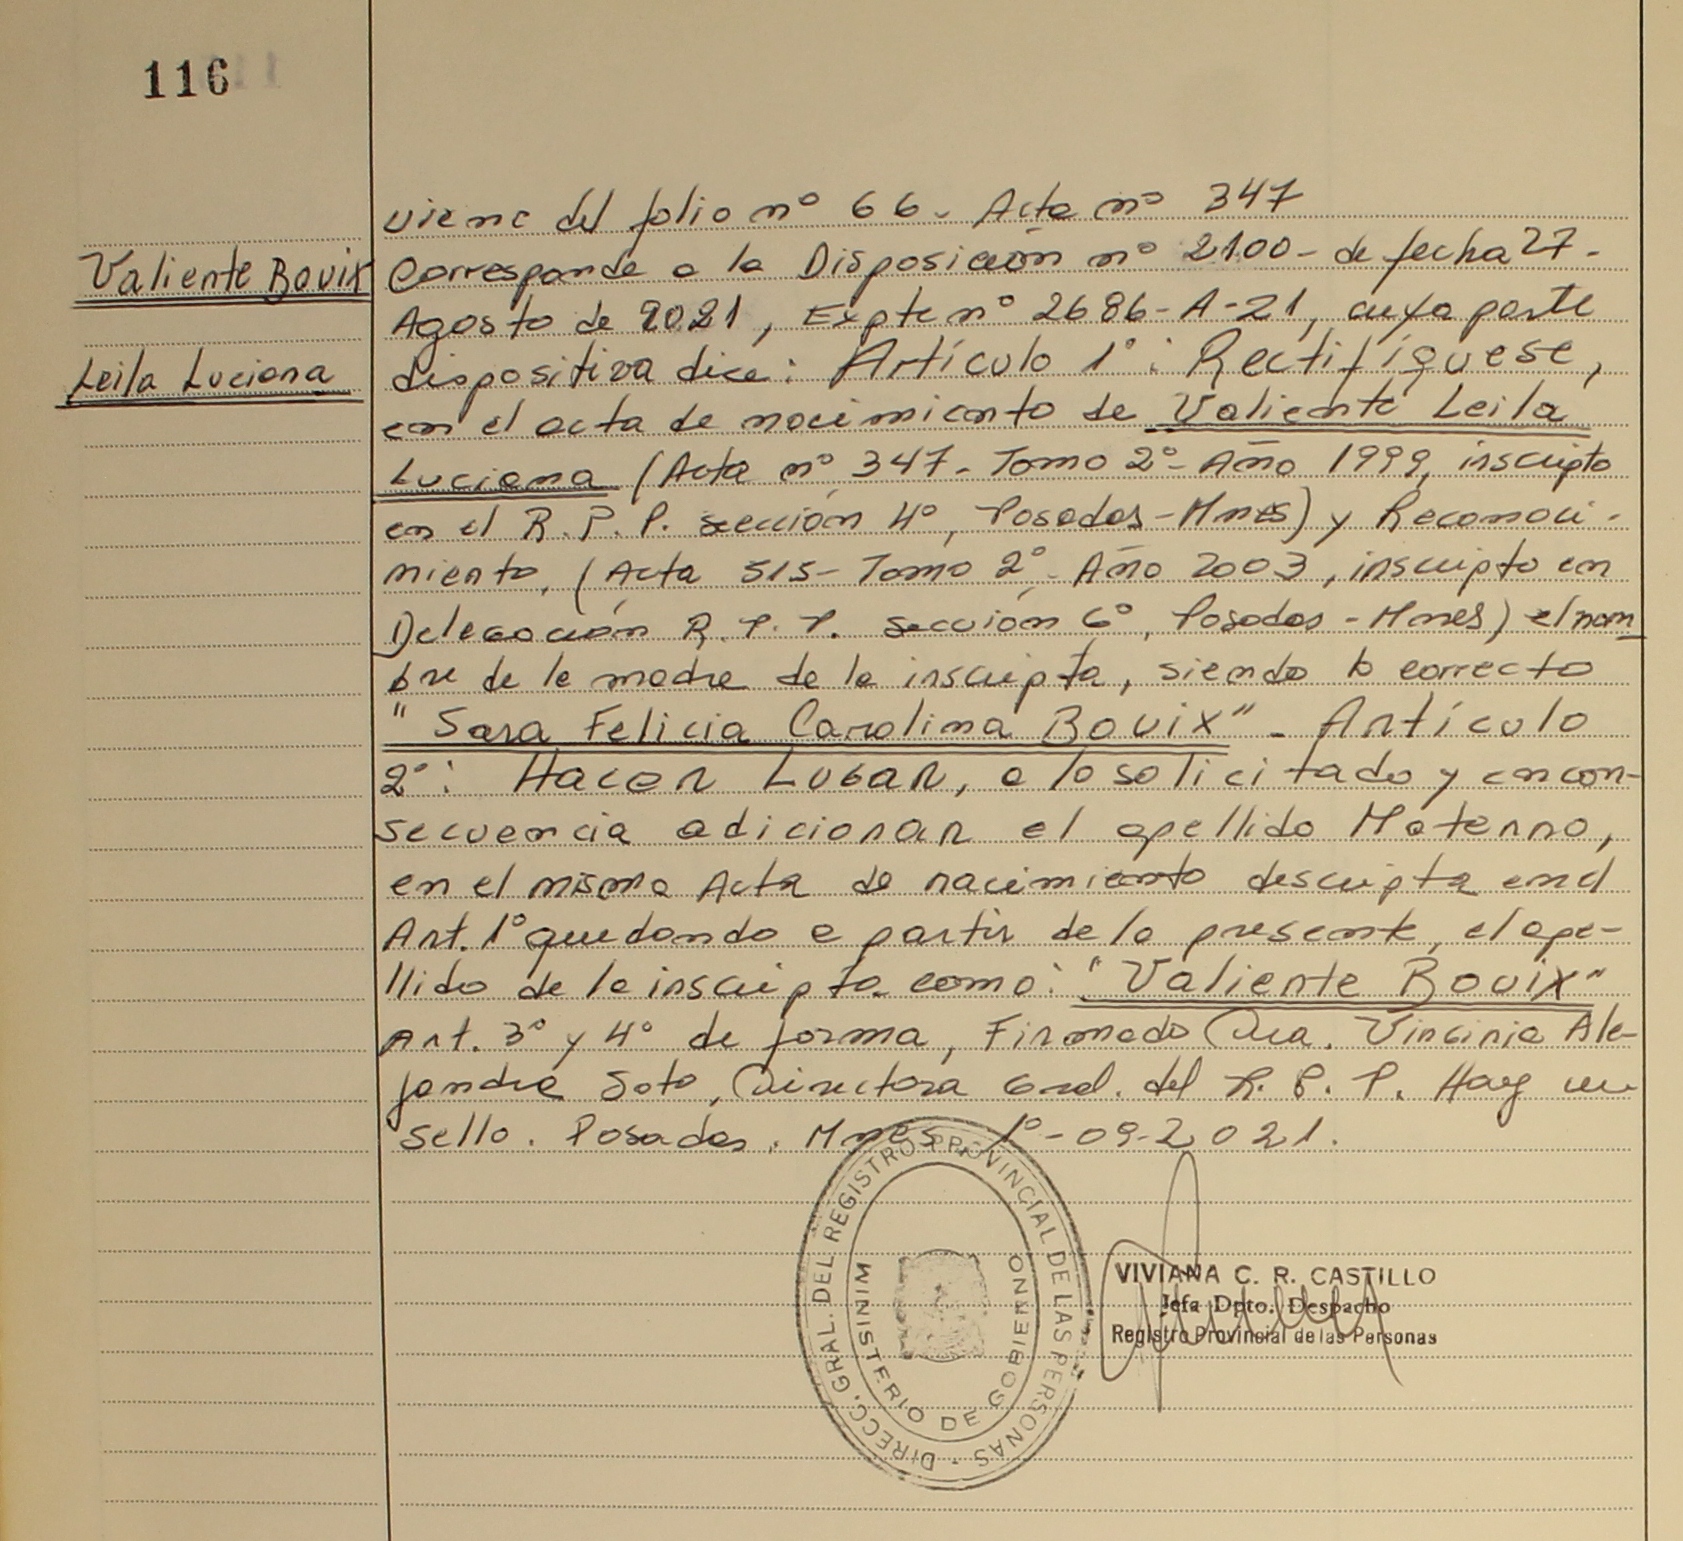 116
Valiente Bouix
Leila Luciana
viene del folio nº 66- Acta nº 347
Corresponde a la Disposición nº 2100- de fecha 27-
Agosto de 2021, Expte nº 2686-A-21, cuya parte
dispositiva dice: Artículo 1º: Rectifíquese,
en el acta de nacimiento de Valiente Leila
Luciana (Acta nº 347- Tomo 2º- Año 1999, inscripto
en el R.P.P. sección 4º, Posadas-Mnes) y Reconoci-
miento, (Acta 515- Tomo 2º. Año 2003, inscripto en
Delegación R.P.P. sección 6º, Posadas - Mnes) el nom
bre de la madre de la inscripta, siendo lo correcto
"Sara Felicia Carolina Bouix" - Artículo
2º: Hacer Lugar, a lo solicitado y en con-
secuencia adicionar el apellido Materno,
en el misma Acta de nacimiento descripta en el
Art. 1º quedando a partir de la presente, el ape-
llido de la inscripta como: "Valiente Bouix"
Art. 3º y 4º de forma, Firmado Dra. Virginia Ale-
jandra Soto, Directora Gral. del R.P.P. Hay un
sello. Posadas, Mnes 1º-09-2021.
DIRECC. GRAL. DEL REGISTRO PROVINCIAL DE LAS PERSONAS -
MINISTERIO DE GOBIERNO
VIVIANA C. R. CASTILLO
Jefa Dpto. Despacho
Registro Provincial de las Personas